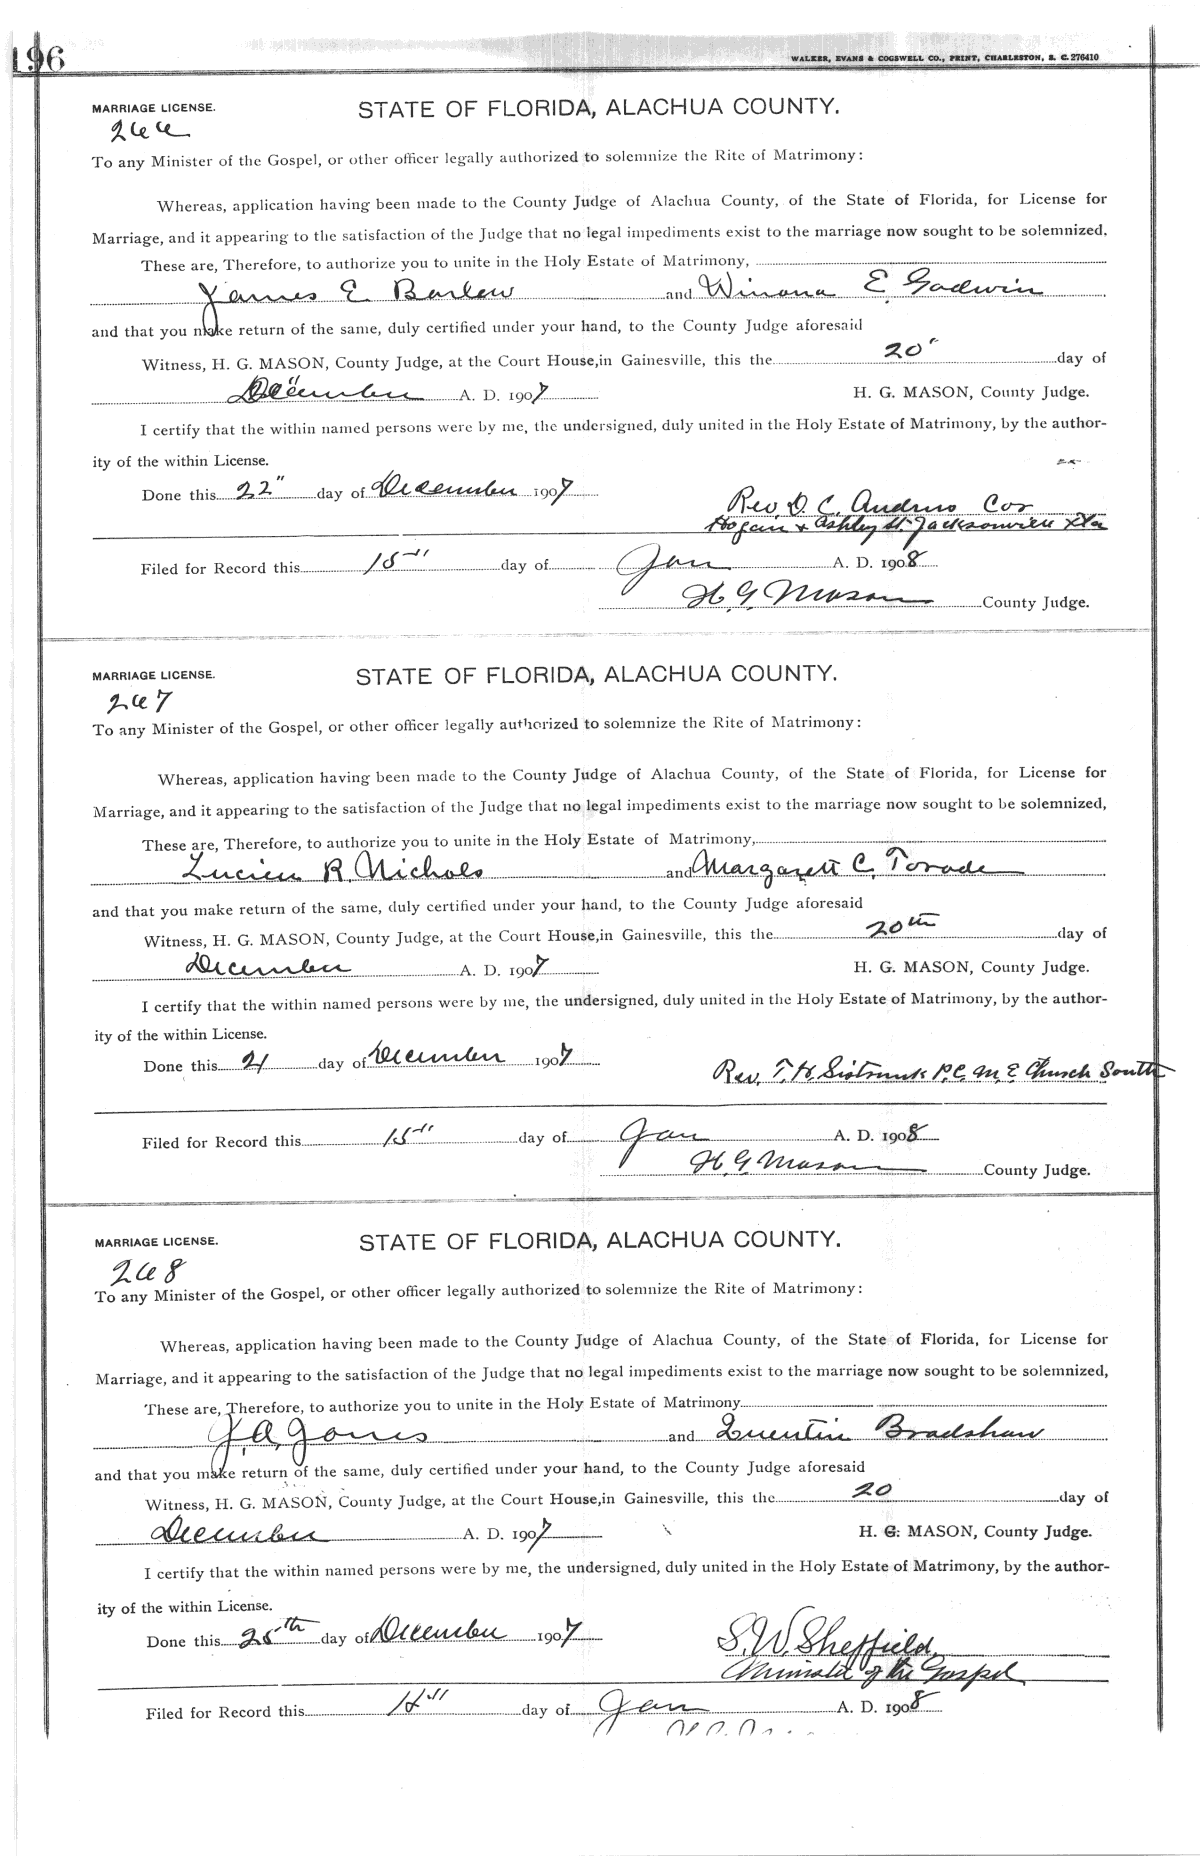 196
WALKER, EVANS & COGSWELL CO., PRINT, CHARLESTON, S. C. 276410
MARRIAGE LICENSE. STATE OF FLORIDA, ALACHUA COUNTY.
266
To any Minister of the Gospel, or other officer legally authorized to solemnize the Rite of Matrimony:
Whereas, application having been made to the County Judge of Alachua County, of the State of Florida, for License for
Marriage, and it appearing to the satisfaction of the Judge that no legal impediments exist to the marriage now sought to be solemnized.
These are, Therefore, to authorize you to unite in the Holy Estate of Matrimony,
James E Barlow and Winona E. Godwin
and that you make return of the same, duly certified under your hand, to the County Judge aforesaid
Witness, H. G. MASON, County Judge, at the Court House, in Gainesville, this the 20" day of
December A. D. 1907 H. G. MASON, County Judge.
I certify that the within named persons were by me, the undersigned, duly united in the Holy Estate of Matrimony, by the author-
ity of the within License.
Done this 22" day of December 1907
Rev D. C. Andrus Cor
Hogan & Ashley St. Jacksonville Fla
Filed for Record this 15" day of Jan A. D. 1908
H. G. Mason County Judge.
MARRIAGE LICENSE. STATE OF FLORIDA, ALACHUA COUNTY.
267
To any Minister of the Gospel, or other officer legally authorized to solemnize the Rite of Matrimony:
Whereas, application having been made to the County Judge of Alachua County, of the State of Florida, for License for
Marriage, and it appearing to the satisfaction of the Judge that no legal impediments exist to the marriage now sought to be solemnized,
These are, Therefore, to authorize you to unite in the Holy Estate of Matrimony,
Lucien R. Nichols and Margarett C. Torode
and that you make return of the same, duly certified under your hand, to the County Judge aforesaid
Witness, H. G. MASON, County Judge, at the Court House, in Gainesville, this the 20th day of
December A. D. 1907 H. G. MASON, County Judge.
I certify that the within named persons were by me, the undersigned, duly united in the Holy Estate of Matrimony, by the author-
ity of the within License.
Done this 21 day of December 1907
Rev. T. H. Sistrunk P. C. M. E Church South
Filed for Record this 15" day of Jan A. D. 1908
H. G. Mason County Judge.
MARRIAGE LICENSE. STATE OF FLORIDA, ALACHUA COUNTY.
268
To any Minister of the Gospel, or other officer legally authorized to solemnize the Rite of Matrimony:
Whereas, application having been made to the County Judge of Alachua County, of the State of Florida, for License for
Marriage, and it appearing to the satisfaction of the Judge that no legal impediments exist to the marriage now sought to be solemnized,
These are, Therefore, to authorize you to unite in the Holy Estate of Matrimony
J. A. Jones and Quentin Bradshaw
and that you make return of the same, duly certified under your hand, to the County Judge aforesaid
Witness, H. G. MASON, County Judge, at the Court House, in Gainesville, this the 20 day of
December A. D. 1907 H. G. MASON, County Judge.
I certify that the within named persons were by me, the undersigned, duly united in the Holy Estate of Matrimony, by the author-
ity of the within License.
Done this 25th day of December 1907
S. W. Sheffield,
Minister of the Gospel
Filed for Record this day of Jan A. D. 1908